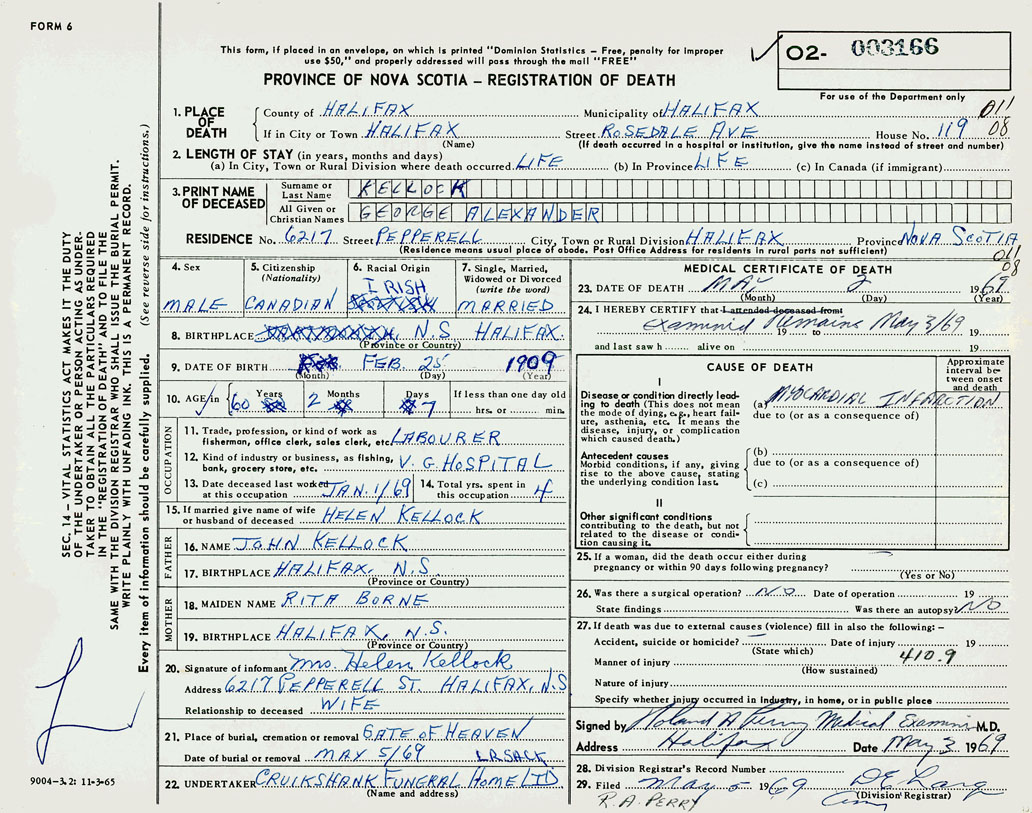 FORM 6
This form, if placed in an envelope, on which is printed "Dominion Statistics – Free, penalty for improper
use $50," and properly addressed will pass through the mail "FREE"
O2- 003166
For use of the Department only
PROVINCE OF NOVA SCOTIA – REGISTRATION OF DEATH
1. PLACE OF DEATH
County of HALIFAX Municipality of HALIFAX 011
If in City or Town HALIFAX Street ROSEDALE AVE House No. 119 08
(Name) (If death occurred in a hospital or institution, give the name instead of street and number)
2. LENGTH OF STAY (in years, months and days)
(a) In City, Town or Rural Division where death occurred. LIFE (b) In Province LIFE (c) In Canada (if immigrant)
3. PRINT NAME OF DECEASED
Surname or Last Name KELLOCK
All Given or Christian Names GEORGE ALEXANDER
RESIDENCE No. 6217 Street PEPPERELL City, Town or Rural Division HALIFAX Province NOVA SCOTIA
(Residence means usual place of abode. Post Office Address for residents in rural parts not sufficient) 011
08
4. Sex
MALE
5. Citizenship
(Nationality)
CANADIAN
6. Racial Origin
IRISH
7. Single, Married,
Widowed or Divorced
(write the word)
MARRIED
8. BIRTHPLACE N.S. HALIFAX
(Province or Country)
9. DATE OF BIRTH FEB. 25 1909
(Month) (Day) (Year)
10. AGE in 60 Years 2 Months 7 Days If less than one day old
hrs. or min.
OCCUPATION
11. Trade, profession, or kind of work as
fisherman, office clerk, sales clerk, etc. LABOURER
12. Kind of industry or business, as fishing,
bank, grocery store, etc. V. G. HOSPITAL
13. Date deceased last worked
at this occupation JAN. 1/69
14. Total yrs. spent in
this occupation 4
15. If married give name of wife
or husband of deceased HELEN KELLOCK
FATHER
16. NAME JOHN KELLOCK
17. BIRTHPLACE HALIFAX, N.S.
(Province or Country)
MOTHER
18. MAIDEN NAME RITA BORNE
19. BIRTHPLACE HALIFAX, N.S.
(Province or Country)
20. Signature of informant Mrs. Helen Kellock
Address 6217 PEPPERELL ST. HALIFAX, N.S
Relationship to deceased WIFE
21. Place of burial, cremation or removal GATE OF HEAVEN
Date of burial or removal MAY 5/69 L.R.SACK
22. UNDERTAKER CRUIKSHANK FUNERAL HOME LTD
(Name and address)
MEDICAL CERTIFICATE OF DEATH
23. DATE OF DEATH MAY 2 1969
(Month) (Day) (Year)
24. I HEREBY CERTIFY that I attended deceased from:
Examined Remains May 3/69 19
and last saw h alive on 19
CAUSE OF DEATH
Approximate
interval be-
tween onset
and death
I
Disease or condition directly lead-
ing to death (This does not mean
the mode of dying, e.g., heart fail-
ure, asthenia, etc. It means the
disease, injury, or complication
which caused death.)
(a) MYOCARDIAL INFARCTION
due to (or as a consequence of)
Antecedent causes
Morbid conditions, if any, giving
rise to the above cause, stating
the underlying condition last.
(b)
due to (or as a consequence of)
(c)
II
Other significant conditions
contributing to the death, but not
related to the disease or condi-
tion causing it.
25. If a woman, did the death occur either during
pregnancy or within 90 days following pregnancy?
(Yes or No)
26. Was there a surgical operation? NO Date of operation 19
State findings Was there an autopsy? NO
27. If death was due to external causes (violence) fill in also the following: –
Accident, suicide or homicide? Date of injury 19
(State which) 410.9
Manner of injury
(How sustained)
Nature of injury
Specify whether injury occurred in Industry, in home, or in public place
Signed by Roland A Perry Medical Examiner M.D.
Address Halifax Date May 3 1969
28. Division Registrar's Record Number
29. Filed May 5 1969
R.A. PERRY (Division Registrar)
SEC. 14 – VITAL STATISTICS ACT MAKES IT THE DUTY
OF THE UNDERTAKER OR PERSON ACTING AS UNDER-
TAKER TO OBTAIN ALL THE PARTICULARS REQUIRED
IN THE "REGISTRATION OF DEATH" AND TO FILE THE
SAME WITH THE DIVISION REGISTRAR WHO SHALL ISSUE THE BURIAL PERMIT.
WRITE PLAINLY WITH UNFADING INK. THIS IS A PERMANENT RECORD.
Every item of information should be carefully supplied. (See reverse side for instructions.)
9004–3.2: 11-3-65